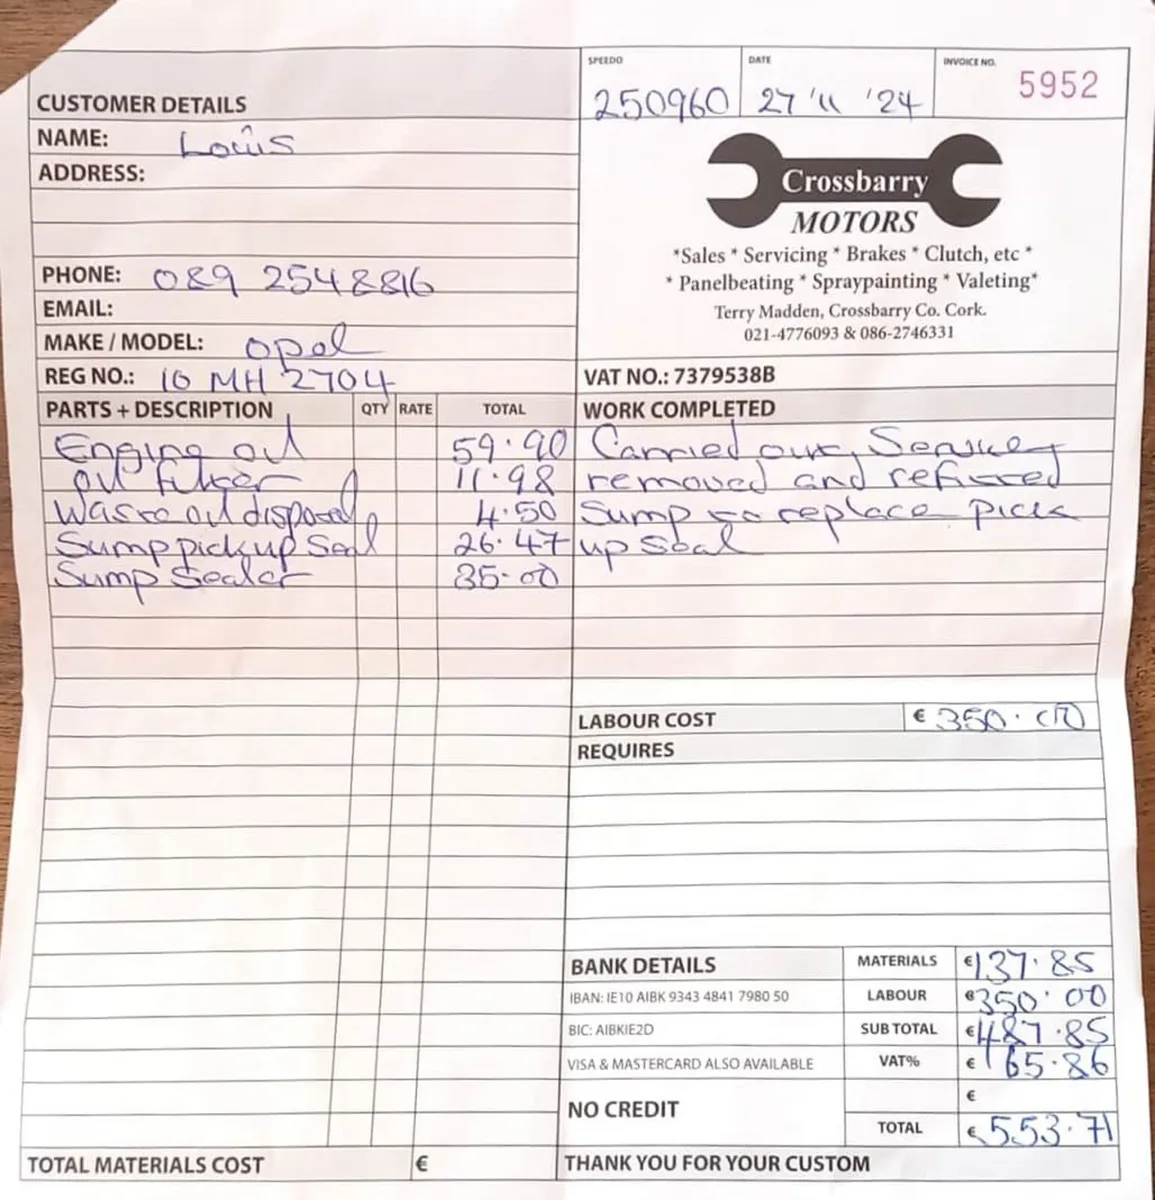 SPEEDO
250960
DATE
27 '11 '24
INVOICE NO.
5952
CUSTOMER DETAILS
NAME: Louis
ADDRESS:
PHONE: 089 2548816
EMAIL:
MAKE / MODEL: opel
REG NO.: 10 MH 2704
Crossbarry
MOTORS
*Sales * Servicing * Brakes * Clutch, etc *
* Panelbeating * Spraypainting * Valeting*
Terry Madden, Crossbarry Co. Cork.
021-4776093 & 086-2746331
VAT NO.: 7379538B
PARTS + DESCRIPTION QTY RATE TOTAL
Engine oil 59.90
oil filter 11.98
Waste oil disposal 4.50
Sump pick up Seal 26.47
Sump Sealer 35.00
WORK COMPLETED
Carried out Service
removed and refitted
Sump to replace Pick
up Seal
LABOUR COST € 350.00
REQUIRES
BANK DETAILS
IBAN: IE10 AIBK 9343 4841 7980 50
BIC: AIBKIE2D
VISA & MASTERCARD ALSO AVAILABLE
NO CREDIT
MATERIALS €137.85
LABOUR €350.00
SUB TOTAL €487.85
VAT% € 65.86
€
TOTAL €553.71
TOTAL MATERIALS COST €
THANK YOU FOR YOUR CUSTOM